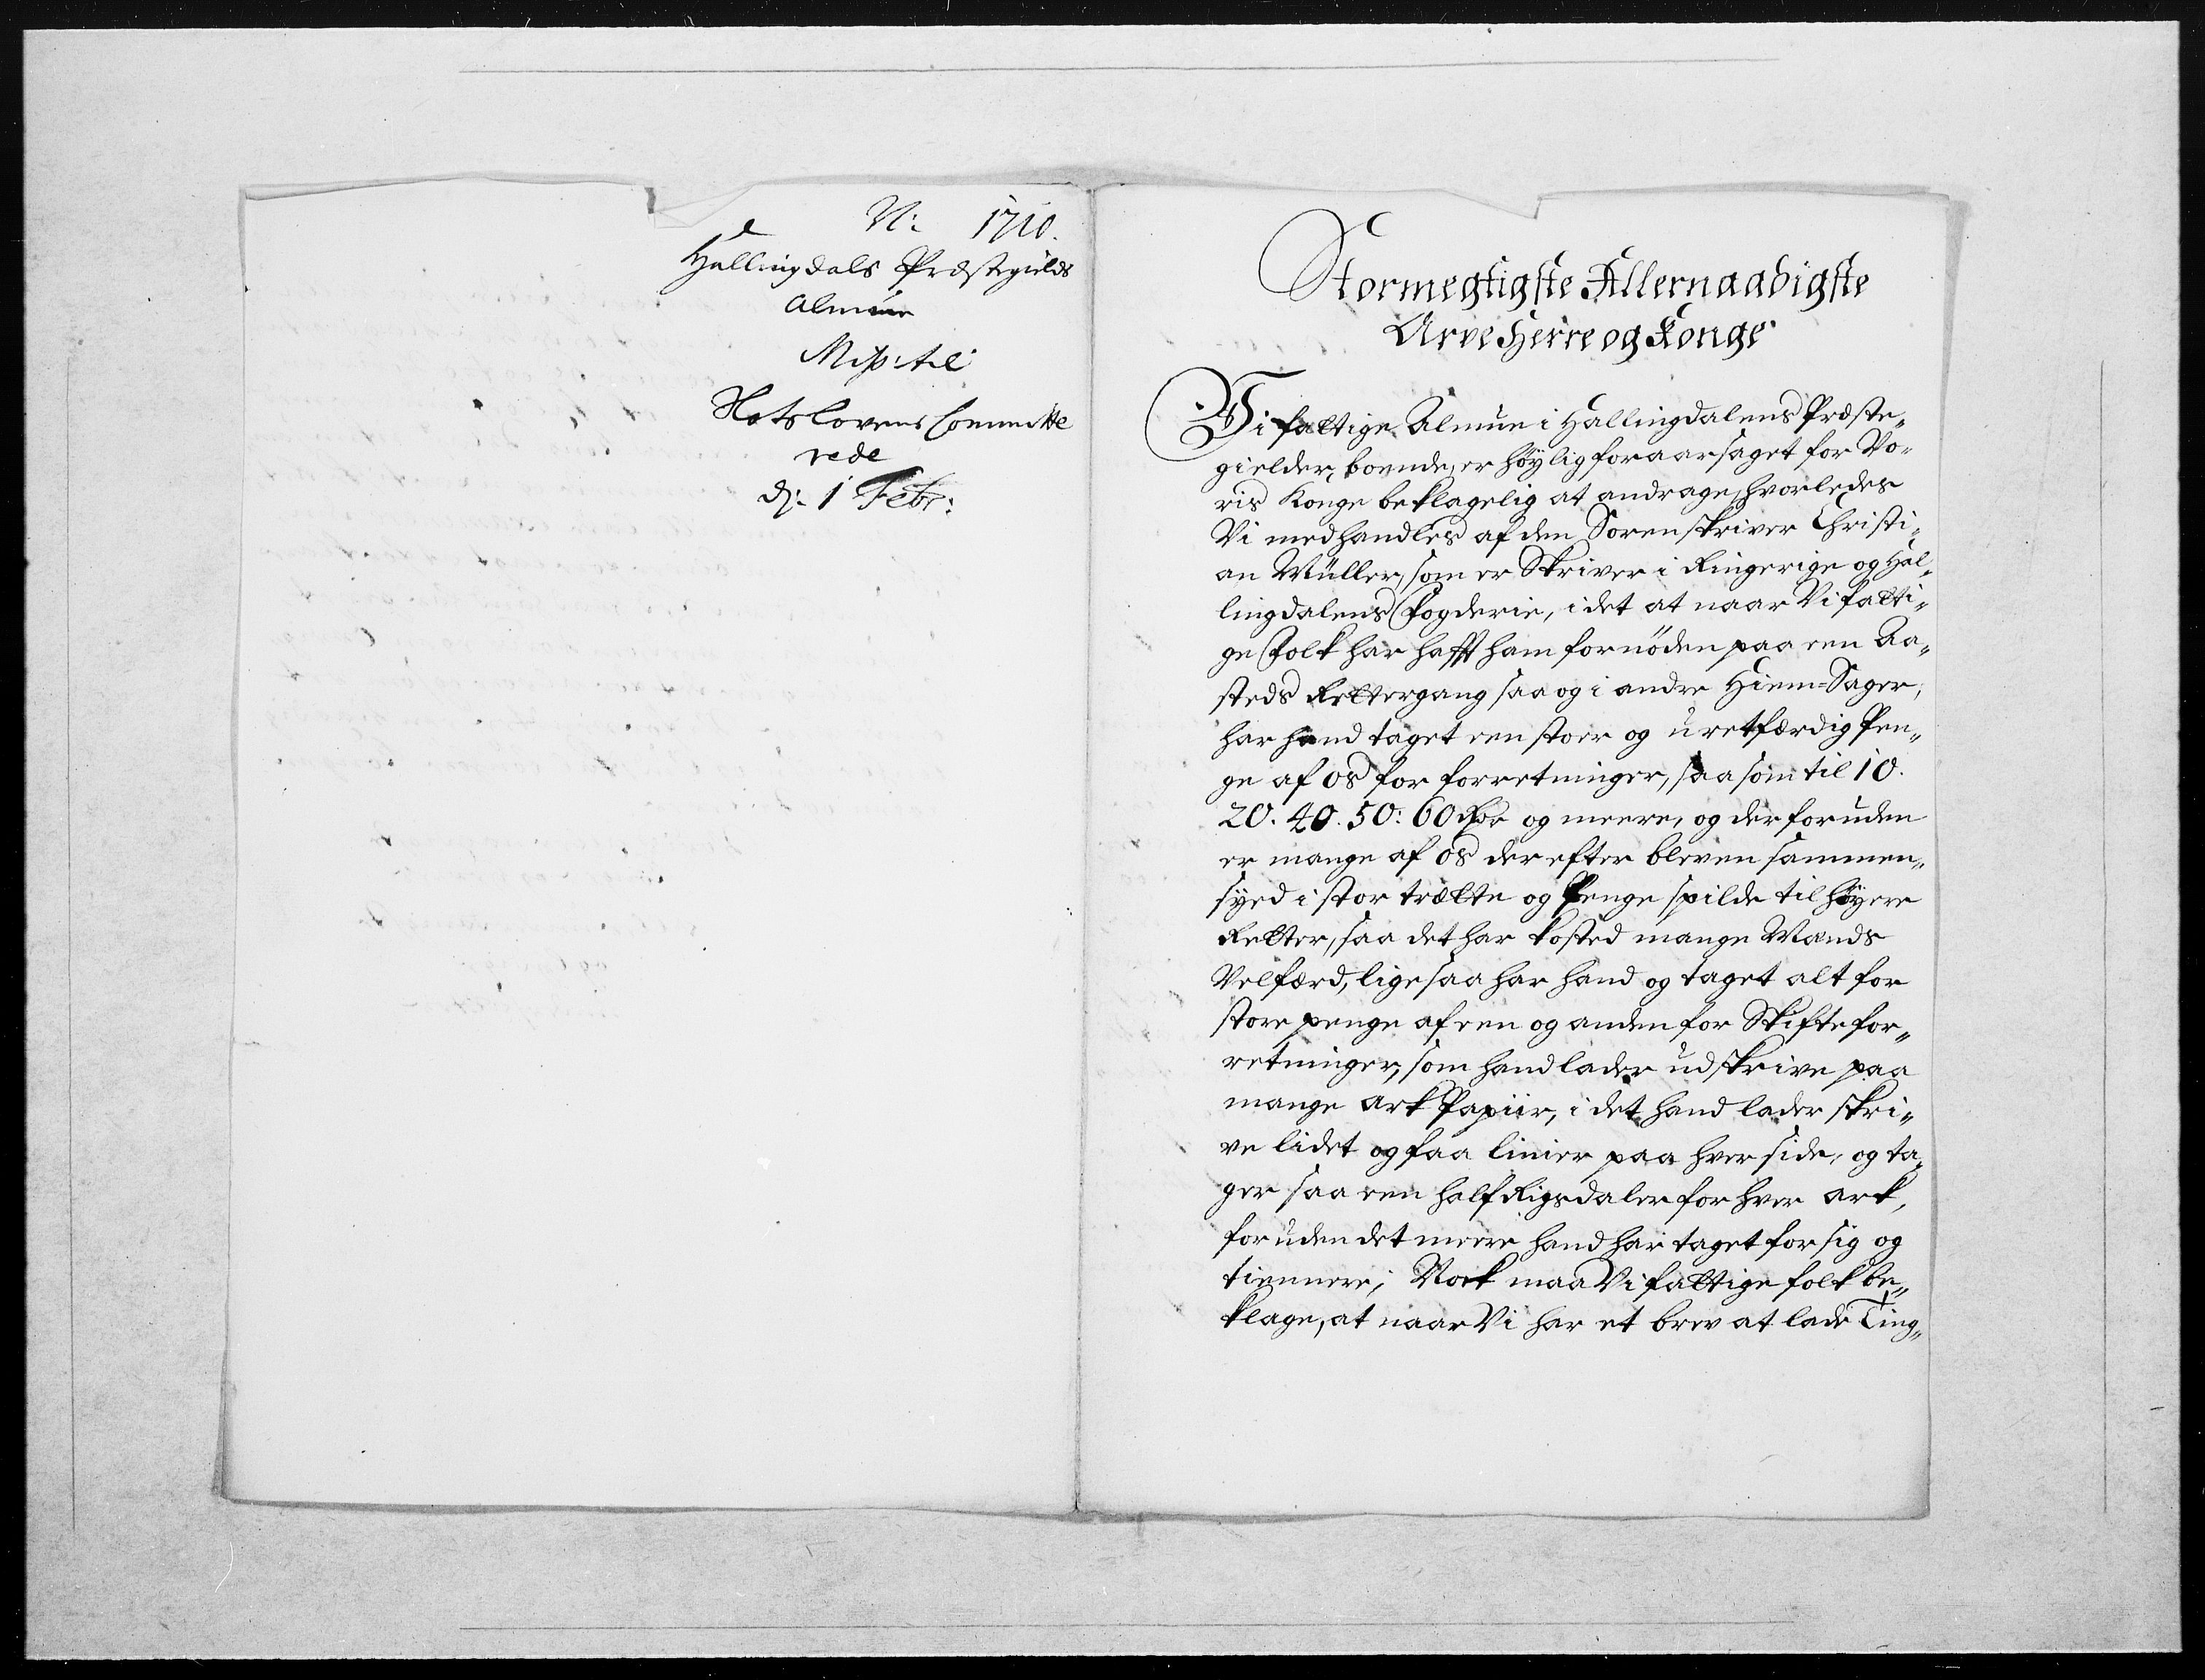 N: 1710.
Hallingdals Præstegields
Almue
Miss: til
Slots Lovens Committe
rede
d: 1 Febr:
Stormegtigste Allernaadigste
Arve Herre og Konge
Vi fattige Almue i Hallingdalens Præste„
gielder boende, er höylig foraarsaget for Vo„
ris Konge beklagelig at andrage, hvorledes
Vi medhandles af den Sorenskriver Christi„
an Müller, som er Skriver i Ringerige og Hal„
lingdalens Fogderie, i det at naar Vi fatti„
ge Folk har hafft ham fornöden paa een Aa„
steds Rettergang saa og i andre Hiem-Sager,
har hand taget een stoer og uretfærdig Pen„
ge af os for forretninger, saasom til 10.
20. 40. 50: 60 Rdr og meere, og der foruden
er mange af os der efter bleven sammen„
syed i stor trætte og Penge spilde til höyere
Retter, saa det har kosted mange Mands
Velfærd, ligesaa har hand og taget alt for
store penge af een og anden for Skiftefor„
retninger, som hand lader udskrive paa
mange ark Papiir, i det hand lader skri„
ve lidet og faa linier paa hver side, og ta„
ger saa een half Rigsdaler for hver ark,
foruden det meere hand har taget for sig og
tiennere; Nock maa Vi fattige folk be„
klage, at naar Vi har et brev at lade Ting„